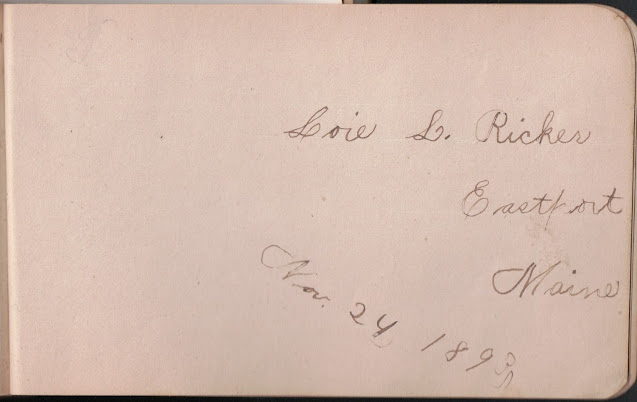 Loie L. Ricker
Eastport
Maine
Nov. 24, 1893